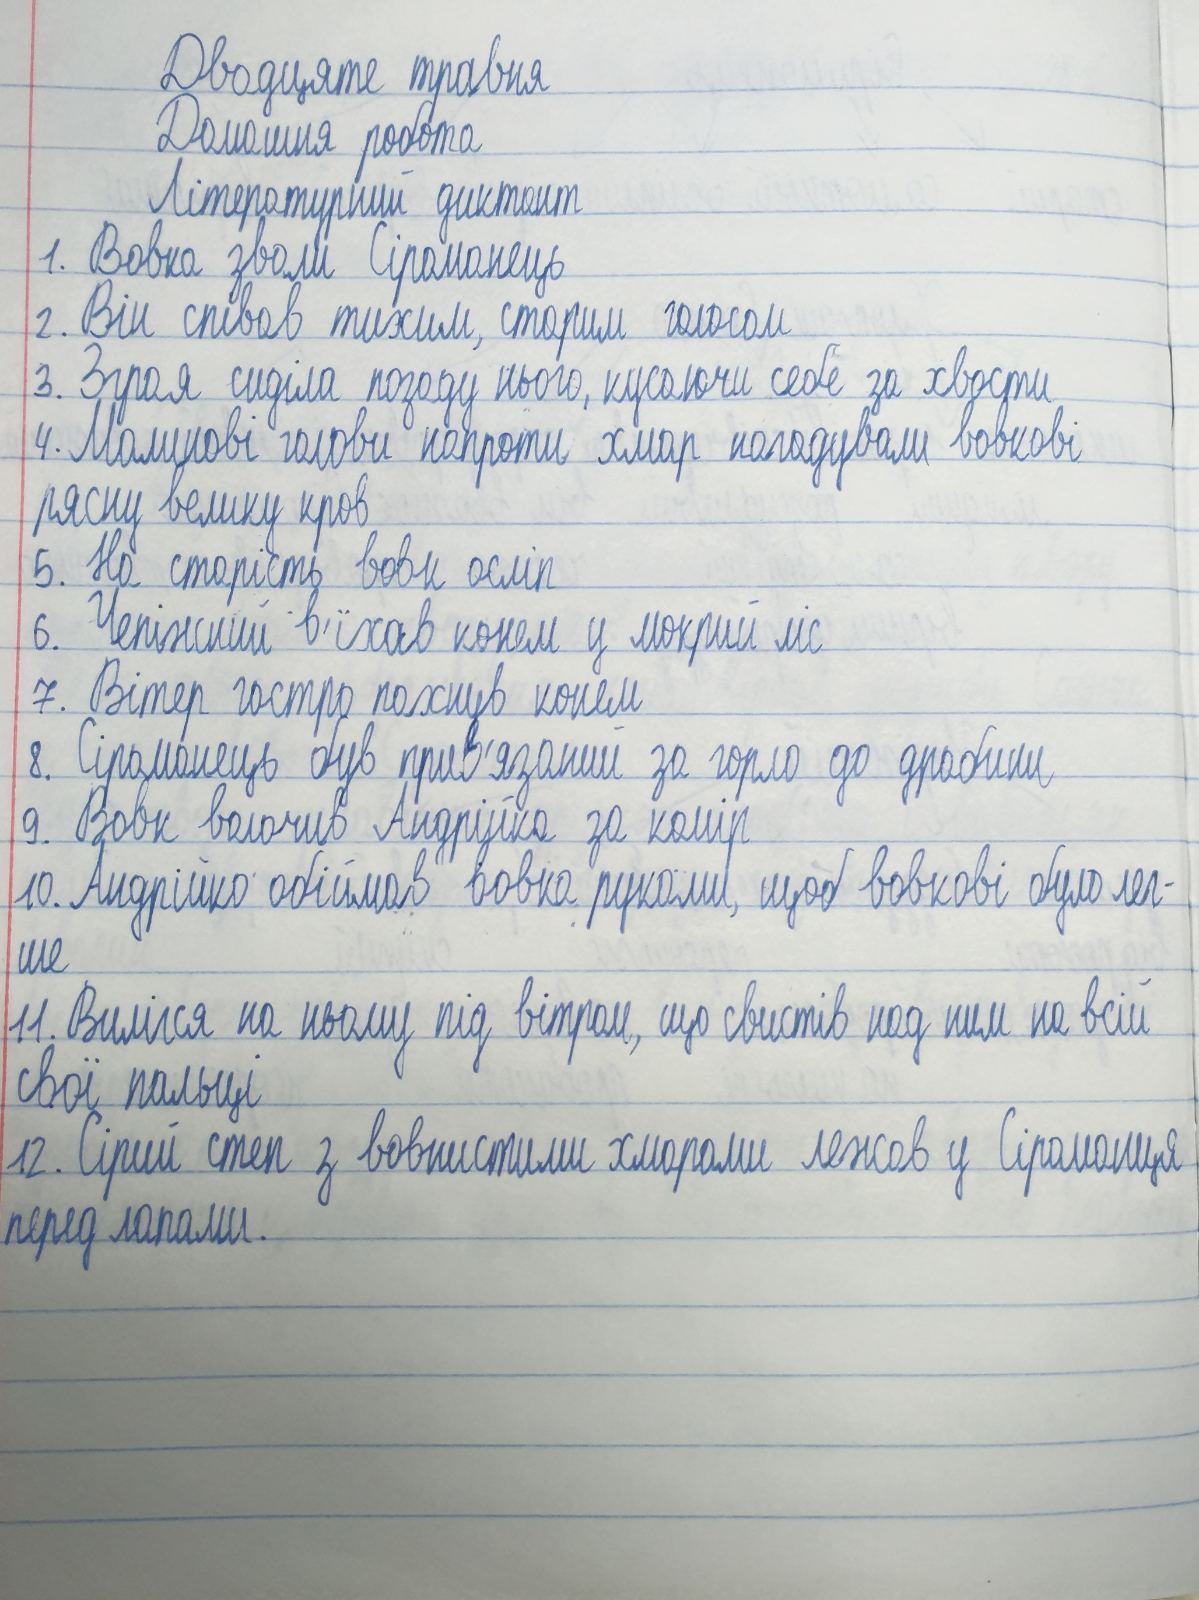 Двадцяте травня
Домашня робота
Літературний диктант
1. Вовка звали Сіроманець
2. Він співав тихим, старим голосом
3. Зграя сиділа позаду нього, кусаючи себе за хвости
4. Малинові голови напроти хмар нагадували вовкові
рясну велику кров
5. На старість вовк осліп
6. Чепіжний в'їхав конем у мокрий ліс
7. Вітер гостро пахнув конем
8. Сіроманець був прив'язаний за горло до драбини
9. Вовк волочив Андрійка за комір
10. Андрійко обіймав вовка руками, щоб вовкові було леп-
ше
11. Вилігся на ньому під вітром, що свистів над ним на всій
свої пальці
12. Сірий степ з вовнистими хмарами лежав у Сіроманця
перед лапами.